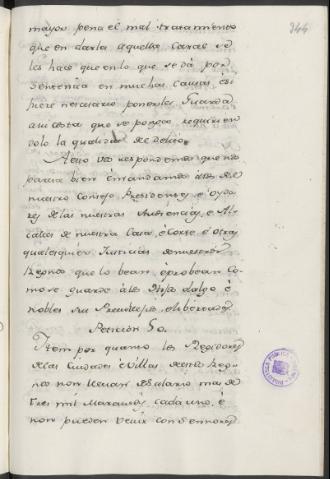 344
mayor pena el mal tratamiento
que en darla aquellas carcel se
les hace que en lo que se dá por
sentencia en muchas causas é si
fuere necesario ponerles Guarda
a su costa que se ponga requirien
dolo la qualidad de delito.
A esto vos respondemos que nos
parece bien é mandamos á los de
nuestro Consejo Presidentes, é oydo
res de las nuestras Audiencias, é Al
caldes de nuestra Casa, é Corte é otras
qualesquier Justicias de nuestros
Reynos que lo bean, é probean co
mo se guarde á los Hijos dalgo é
nobles sus Preeminencias, é libertades
Peticion 50.
Item por quanto los Regidores
de las Ciudades é Villas de estos Rey
nos non llevan de salario mas de
tres mil Maravedis cada uno, é
non pueden venir con de menores
BIBLIOTECA PUBLICA